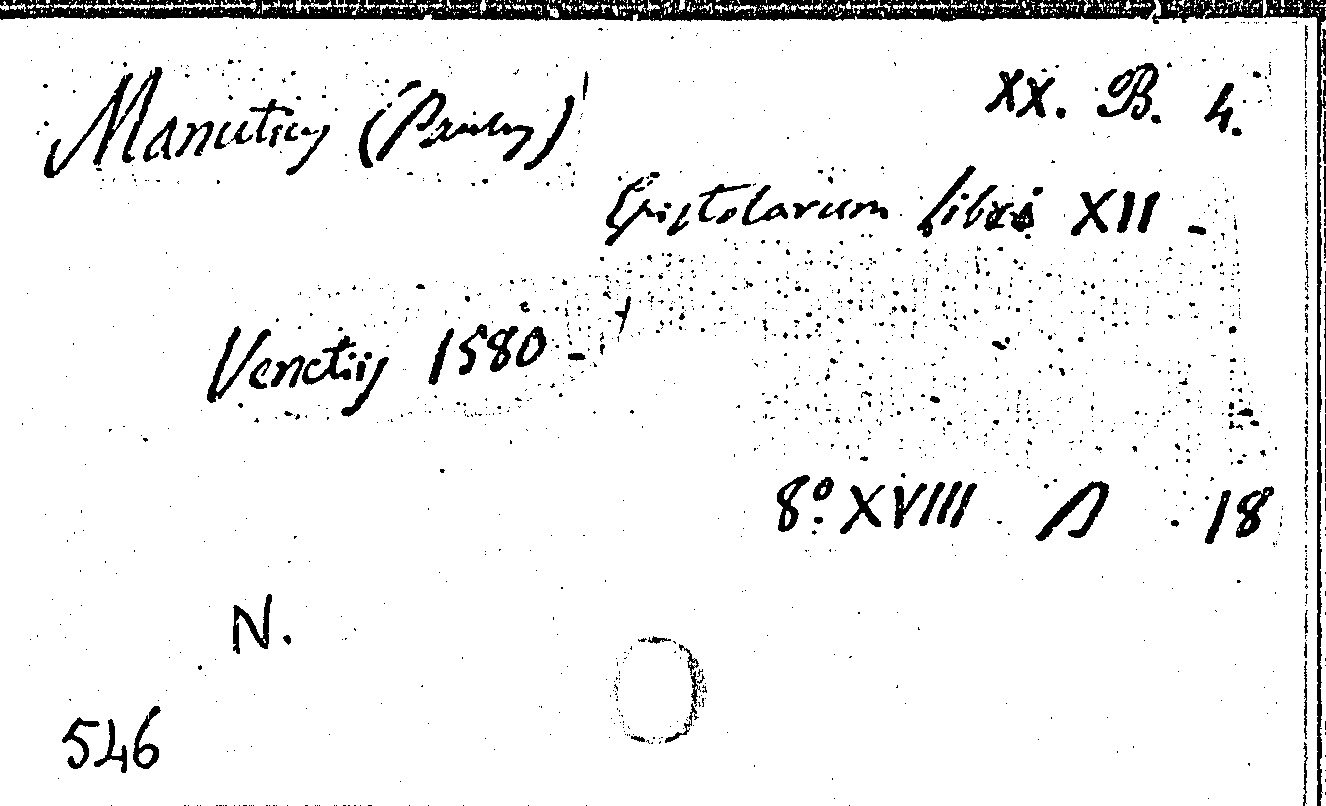 Manutius (Paulus) XX. B. 4.
Epistolarum libri XII -
Venetiis 1580 -
8º XVIII 18
N.
546